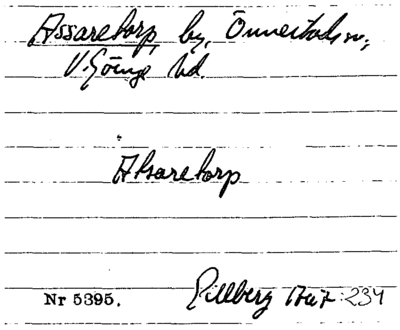 Assaretorp, by, Önnestads sn,
V. Göinge hd.
Absaretorp
Nr 5395. Gillberg 1767: 234